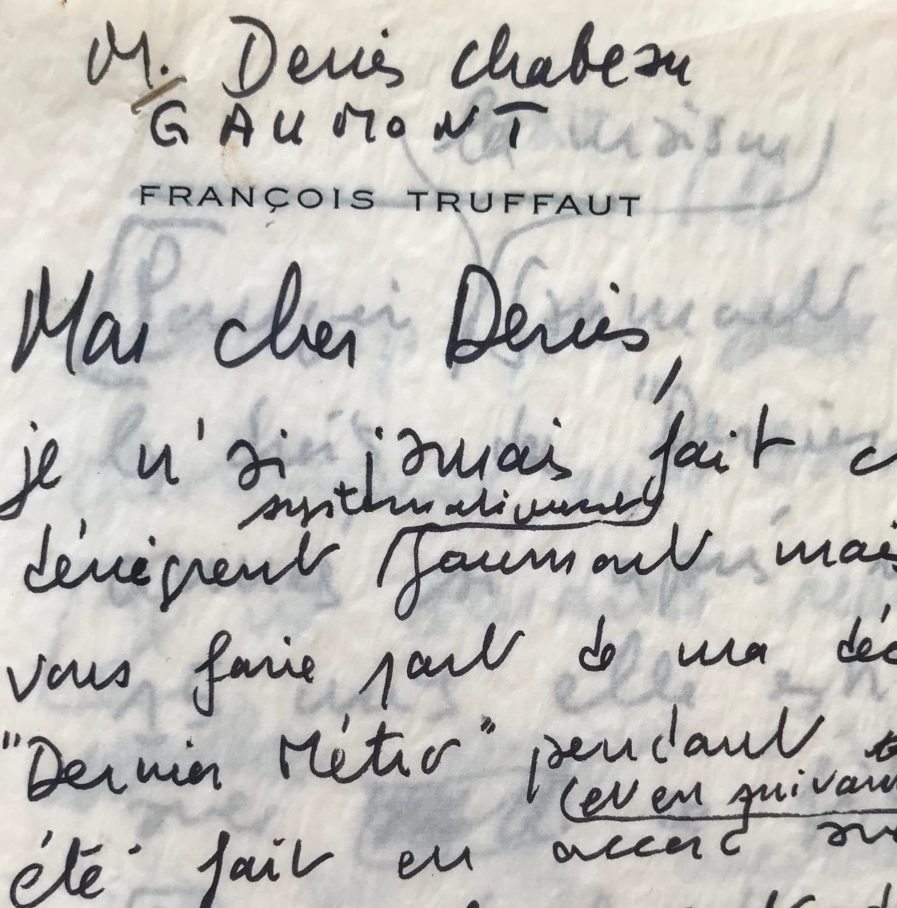 M. Denis Chabeau
GAUMONT
FRANÇOIS TRUFFAUT
Mon cher Denis,
je n'ai jamais fait c
systématiquement
dénigrent Gaumont mais
vous faire part de ma déc
"Dernier Métro" pendant
(et en suivant
été fait en accord av